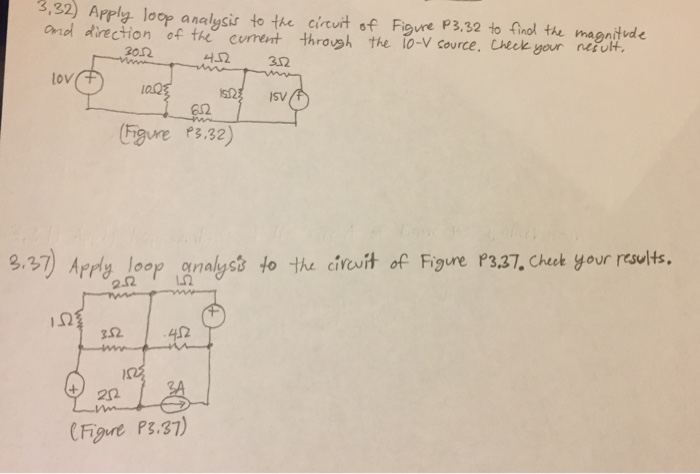 3.32) Apply loop analysis to the circuit of Figure P3.32 to find the magnitude
and direction of the current through the 10-V source. Check your result.
30Ω 4Ω 3Ω
10V + 10Ω 15Ω 15V +
6Ω
(Figure P3.32)
3.37) Apply loop analysis to the circuit of Figure P3.37. Check your results.
2Ω 1Ω
1Ω +
3Ω 4Ω
1Ω
+ 2Ω 3A
(Figure P3.37)